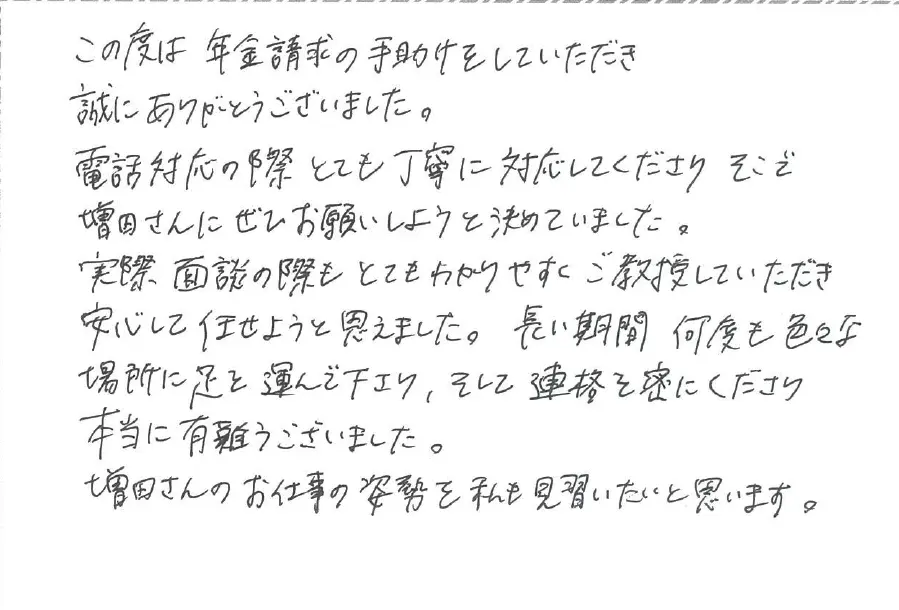 この度は 年金請求の手助けをしていただき
誠にありがとうございました。
電話対応の際 とても丁寧に対応してくださり そこで
増田さんにぜひお願いしようと決めていました。
実際 面談の際も とてもわかりやすく ご教授していただき
安心して任せようと思えました。 長い期間 何度も色々な
場所に足を運んで下さり、そして連格を密にくださり
本当に有難うございました。
増田さんのお仕事の姿勢を私も見習いたいと思います。